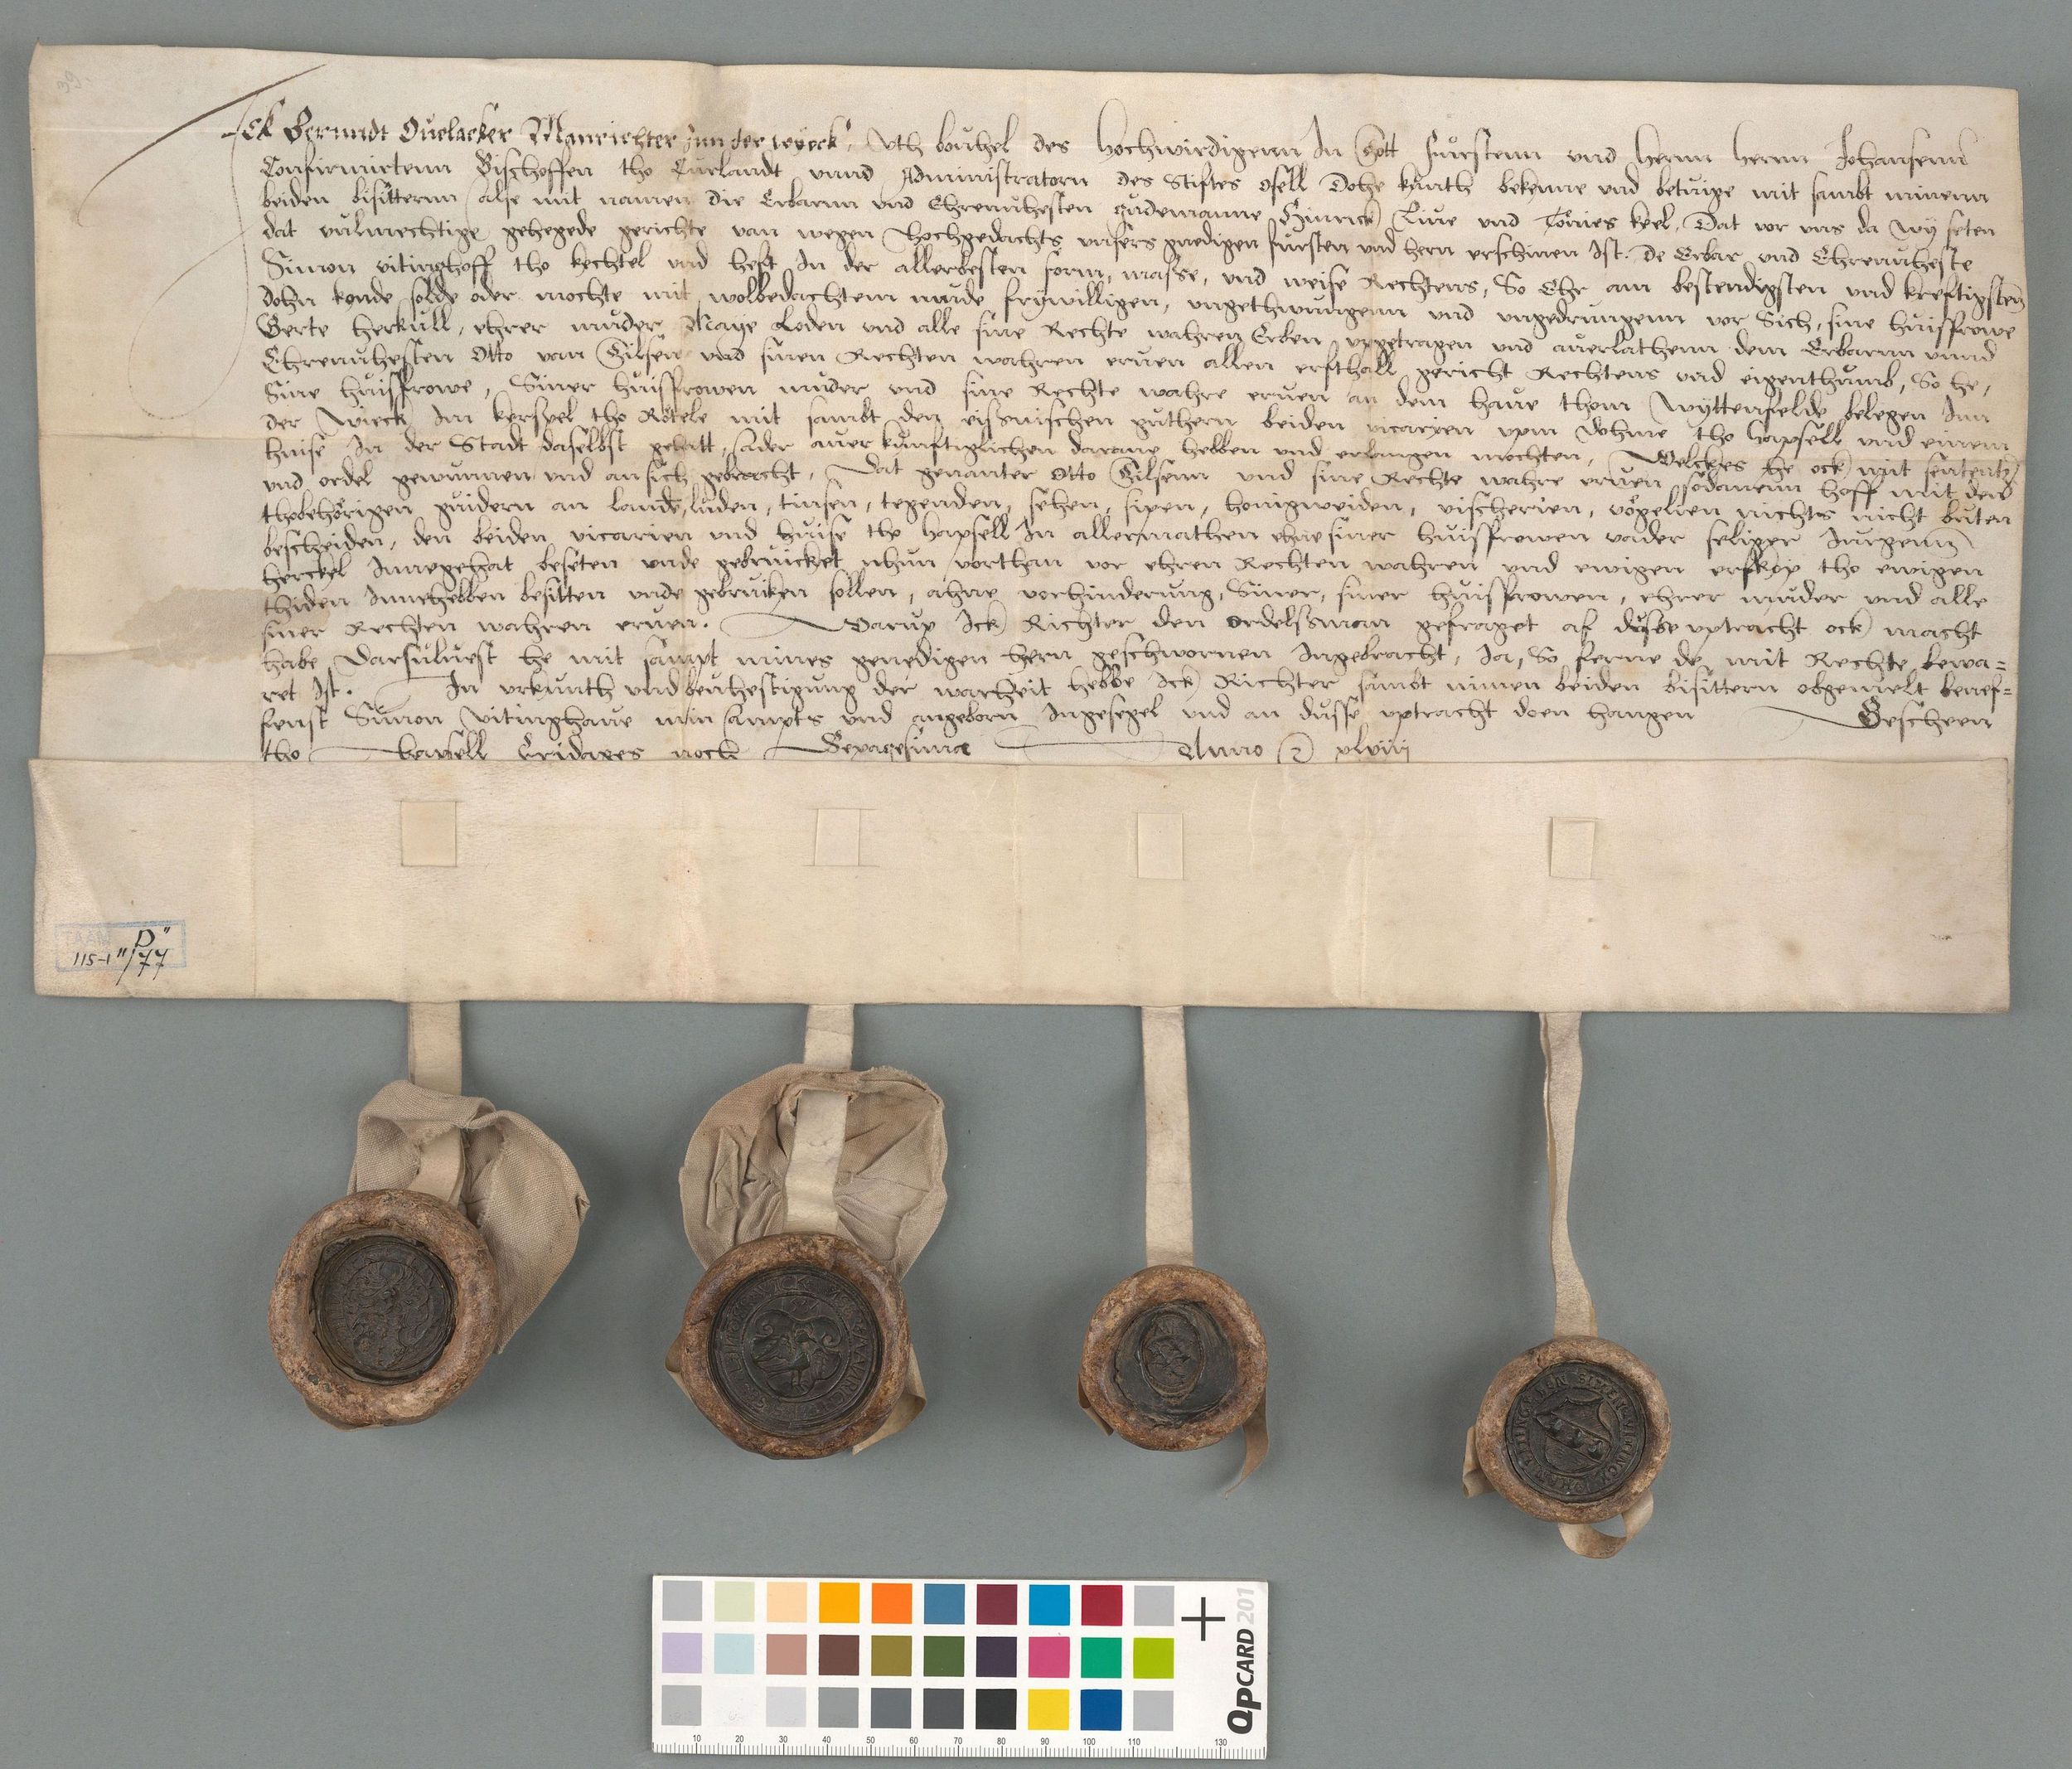 Ick Berundt Ouelacker Manrichter Inn der wyeck, Vth beuhel des Hochwirdigenn In Gott furstenn vnd Hernn Hernn Johansenn
Confirmirtenn Bischoffen tho Curlandt vnnd Administratorn des Stiftes Osell Dohe kunth bekenne vnd betuige mit sambt minenn
beiden bisitternn alse mit namen die Erbarnn vnd Ehrenuhesten gudemanne Hinrick Liue vnd Tönies keel, Dat vor vns da wy seten
dat vulmechtige gehegede gerichte van wegen Hochgedachts vnsers gnedigen fursten vnd hern erschinen Ist. De Erbar vnd Ehrenuheste
Simon vitinghoff tho kechtel vnd heft In der allerbesten form, masse, vnd weise Rechtens, So Ehr am bestendigsten vnd kreftigsten
dohn konde solde oder mochte mit wolbedachtem mude frywilligen, vngethwungenn vnd vngedrungenn vor Sich, sine huisfrowe
Gerte herkull, ehrer muder Maye Loden vnd alle sine Rechte wahren Erben vpgetragen vnd auerlathenn dem Erbarnn vnnd
Ehrenuhesten Otto van Gilsen vnd sinen Rechten wahren eruen allen erfthall gericht Rechtens vnd eigenthumb, So he,
Sine huisfrowe, Siner huisfrowen muder vnd sine Rechte wahre eruen an dem haue thom Wyttenfelde belegen Inn
der Wieck Im kerspel tho Rötele mit sambt den eissnischen guthern beiden vicarien vpm Dohme tho hapsell vnd einem
huise In der Stadt daselbst gehatt, oder auer kunftiglichen darane hebben vnd erlangen mochten, Welckes he ock mit sententz
vnd ordel gewunnen vnd an sich gebracht, Dat genanter Otto Gilsenn vnd sine Rechte wahre eruen sodanem hoff mit den
thobehörigen guidern an lande, luden, tinsen, tegenden, sehen, sipen, honigweiden, vischerien, vögelien nichts nicht buten
bescheiden, den beiden vicarien vnd huise tho hapsell In allermathen ehne siner huisfrowen vader seliger Jurgenn
herckel Innegehat beseten vnde gebruicket nhun vorthan vor ehren Rechten wahren vnd ewigen erfkop tho ewigen
thiden Innehebben besitten vnde gebruiken sollen, ahne vorhinderung, Siner, siner huisfrowen, ehrer muder vnd alle
siner Rechten wahren eruen. Darup Ick Richter den ordelssman gefraget af dusse vptracht ock macht
habe Darsuluest he mit sampt mines genedigen hern geschwornen Ingebracht, Ja, So ferne de mit Rechte bewa=
ret Ist. In vrkunth vnd beuhestigung der warheit hebbe Ick Richter sambt minen beiden bisittern obgemelt benef=
fenst Simon Vitinghaue min ampts vnd angeborn Ingesegel vnd an dusse vptracht doen hangen Gescheen
tho hapsell Fridages noch Sexagesima Anno xlviii
TAAM
115-1 "D"/77
QPCARD 201
10 20 30 40 50 60 70 80 90 100 110 130